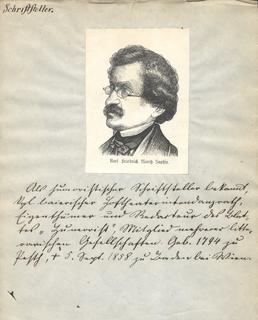 Schriftsteller.
Karl Friedrich Moritz Saphir.
Als humoristischer Schriftsteller bekannt,
kgl. baierischer Hoftheaterintendanzrath,
Eigenthümer und Redacteur des Blat-
tes „Humorist", Mitglied mehrerer litte-
rarischen Gesellschaften. Geb. 1794 zu
Pesth, † 5. Sept. 1858 zu Baden bei Wien.